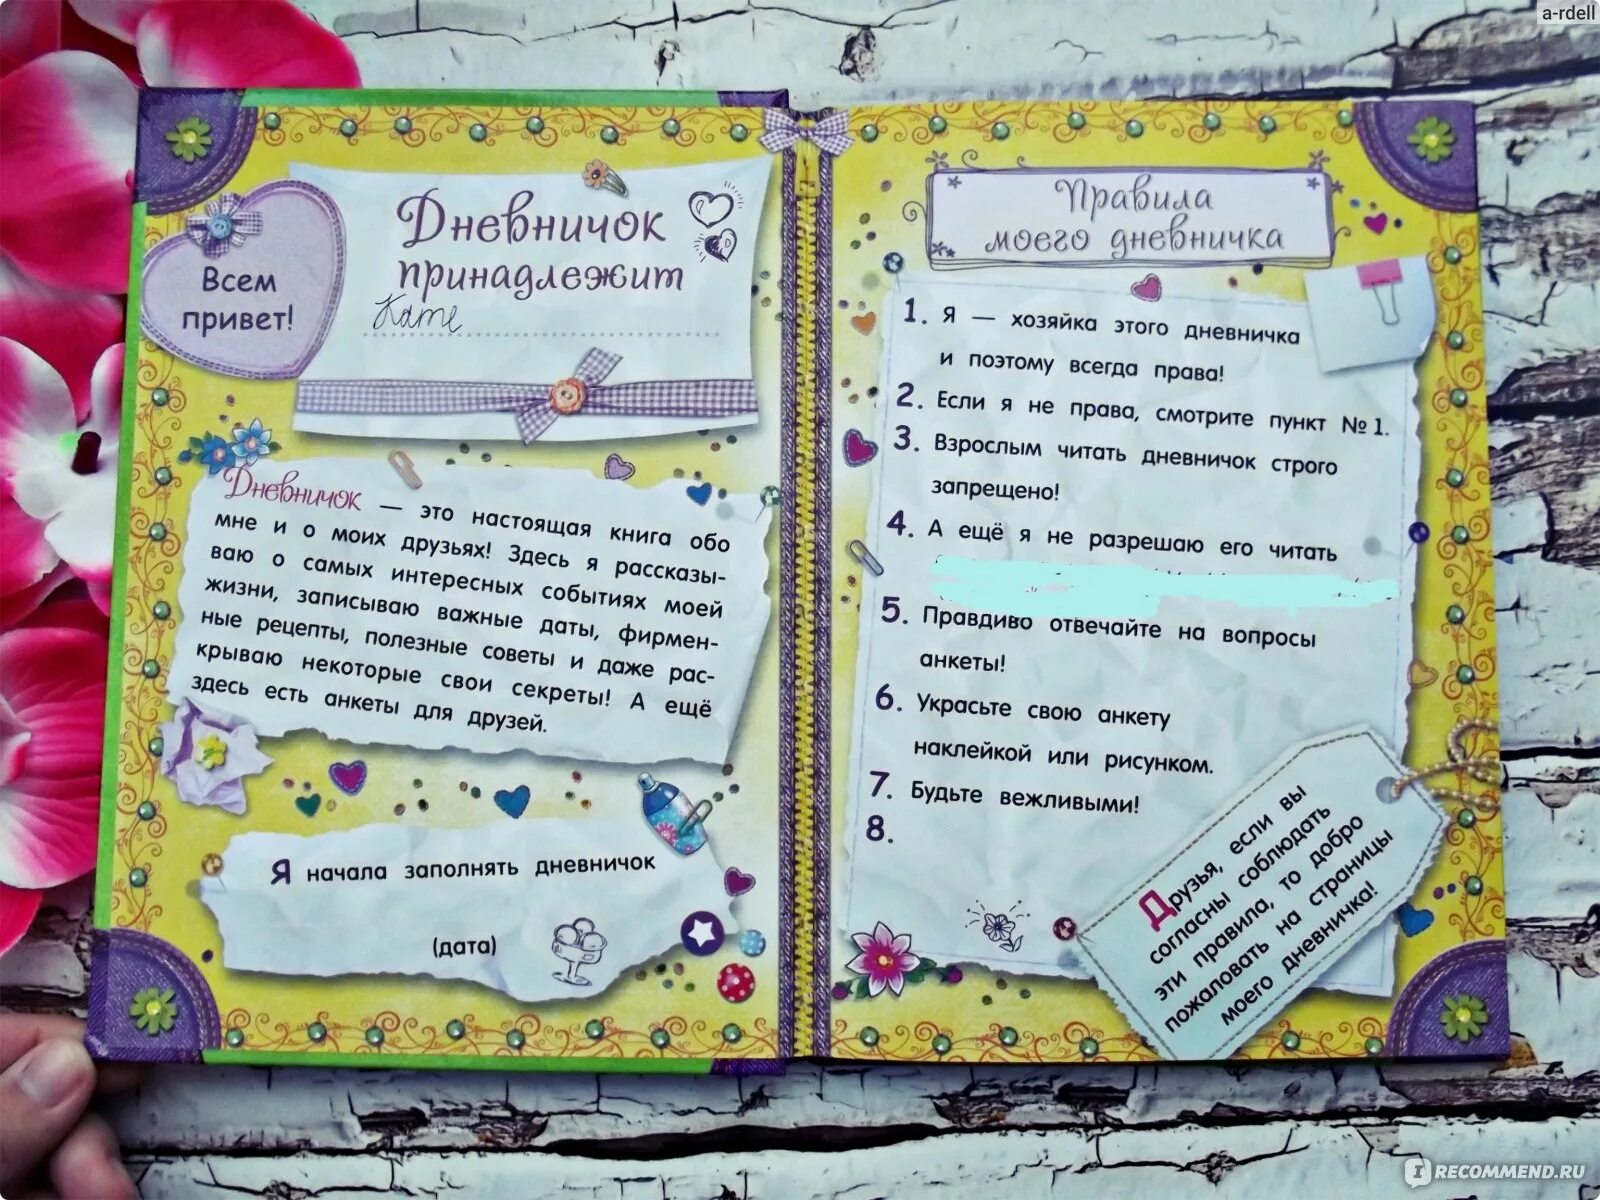 a-rdell
Всем
привет!
Дневничок
принадлежит
Кате
Дневничок — это настоящая книга обо
мне и о моих друзьях! Здесь я рассказы-
ваю о самых интересных событиях моей
жизни, записываю важные даты, фирмен-
ные рецепты, полезные советы и даже рас-
крываю некоторые свои секреты! А ещё
здесь есть анкеты для друзей.
Я начала заполнять дневничок
(дата)
Правила
моего дневничка
1. Я — хозяйка этого дневничка
и поэтому всегда права!
2. Если я не права, смотрите пункт № 1.
3. Взрослым читать дневничок строго
запрещено!
4. А ещё я не разрешаю его читать
5. Правдиво отвечайте на вопросы
анкеты!
6. Украсьте свою анкету
наклейкой или рисунком.
7. Будьте вежливыми!
8.
Друзья, если вы
согласны соблюдать
эти правила, то добро
пожаловать на страницы
моего дневничка!
IRECOMMEND.RU